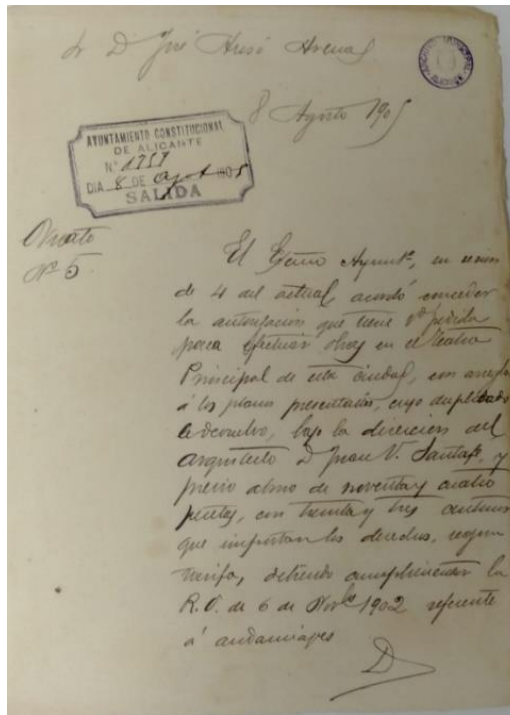 Sr D José Ausó Arenas
ARCHIVO MUNICIPAL
8 Agosto 1905
AYUNTAMIENTO CONSTITUCIONAL
DE ALICANTE
Nº 1757
DIA 8 DE Agosto 1905
SALIDA
Ornato
Nº 5.
El Excmo Ayuntº, en sesion
de 4 del actual, acordó conceder
la autorizacion que tiene Vd pedida
para efectuar obras en el teatro
Principal de esta ciudad, con arreglo
á los planos presentados, cuyo duplicado
le devuelvo, bajo la direccion del
Arquitecto D Juan V. Santafé, y
previo abono de noventa y cuatro
pesetas, con treinta y tres centimos
que importan los derechos, segun
tarifa, debiendo cumplimentar la
R.O. de 6 de Novbe 1902 referente
á andamiages
D